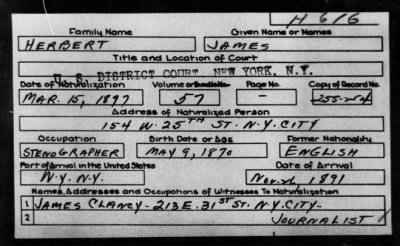 H 616
Family Name Given Name or Names
HERBERT JAMES
Title and Location of Court
U. S. DISTRICT COURT, NEW YORK, N.Y.
Date of Naturalization Volume or Bundle No. Page No. Copy of Record No.
MAR. 15, 1897 57 — 255-254
Address of Naturalized Person
154 W. 25TH ST. N.Y. CITY
Occupation Birth Date or Age Former Nationality
STENOGRAPHER MAY 9, 1870 ENGLISH
Port of Arrival in the United States Date of Arrival
N.Y. N.Y. 1891
Names, Addresses and Occupations of Witnesses To Naturalization
1 JAMES CLANCY - 213 E. 31ST ST. N.Y. CITY-
2 JOURNALIST